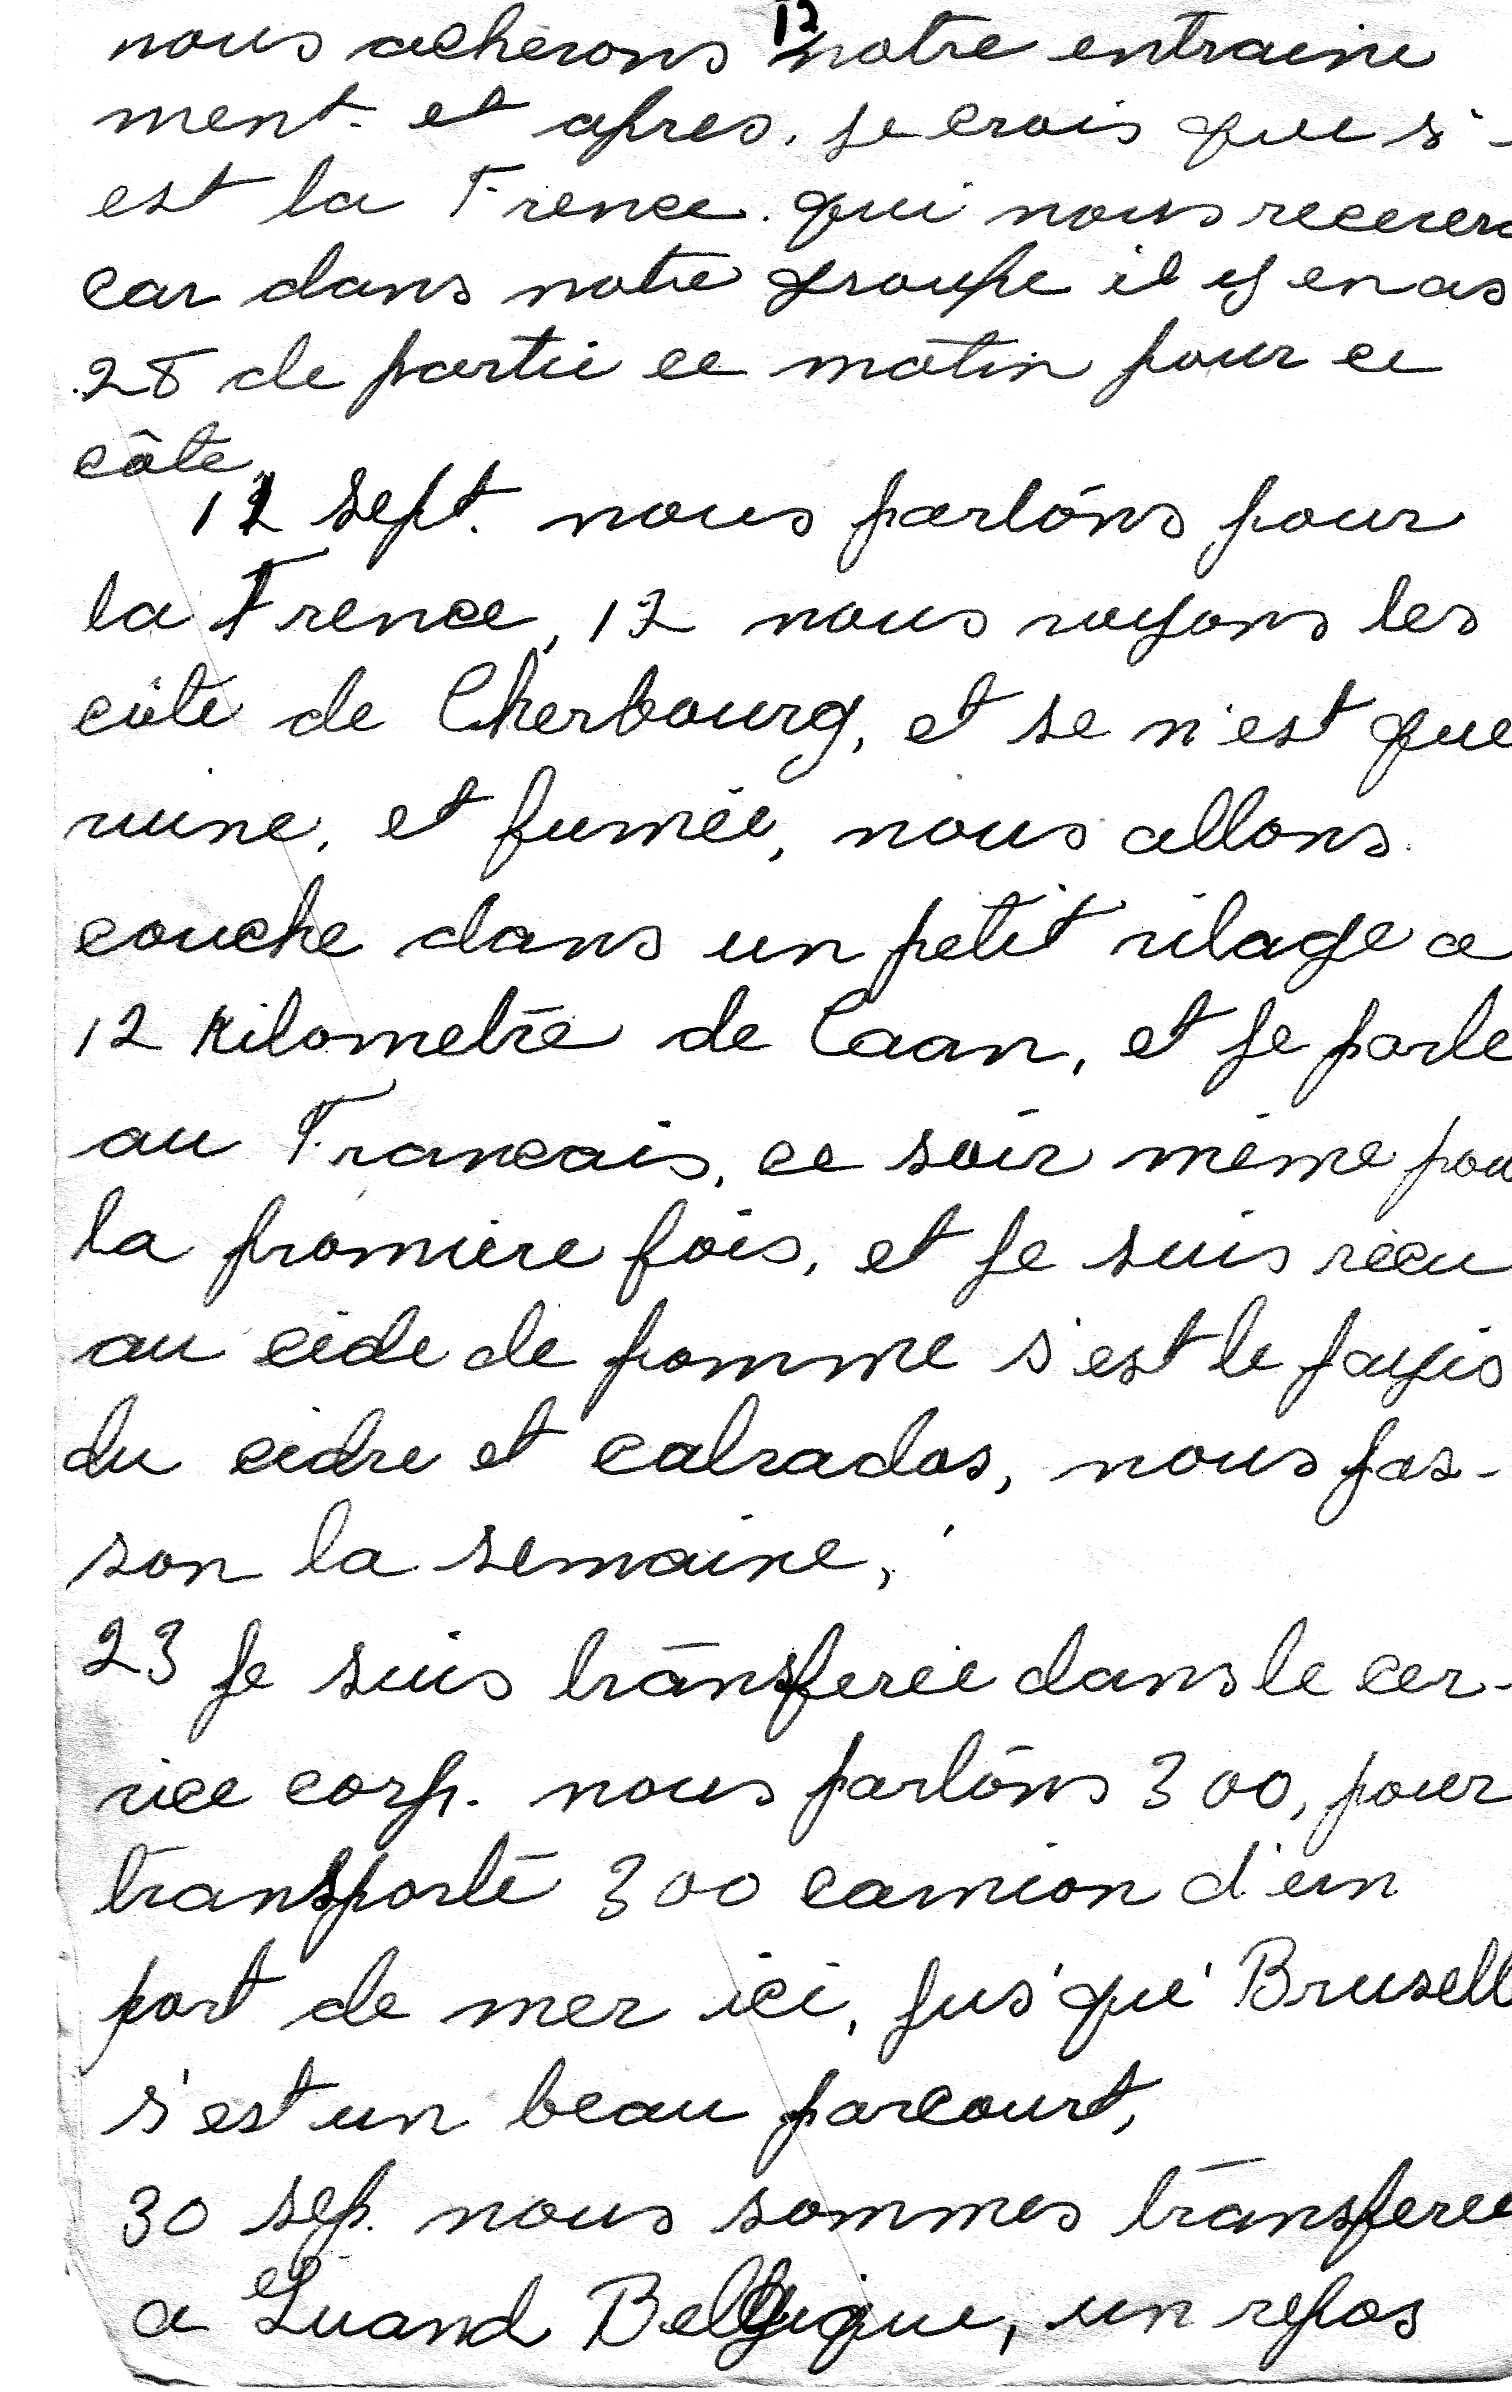 12
nous acherons notre entraine
ment. et apres. je crois que s'-
est la Frence. qui nous recevera
car dans notre groupe il y en as
28 de partie ce matin pour ce
côte,
12 sept. nous partons pour
la Frence, 12 nous voyons les
côte de Cherbourg, et se n'est que
ruine, et fumée, nous allons
couche dans un petit vilage a
12 kilometre de Caan, et je parle
au Francais, ce soir même pou
la promiere fois, et je suis recu
au cide de pomme s'est le payis
du cidre et calvados, nous pas-
son la semaine,
23 je suis transferee dans le cer-
vice corp. nous partons 300, pour
transporté 300 camion d'un
port de mer ici, jus'qu'e Brusell
s'est un beau parcourt,
30 sep. nous sommes transferee
a Guand Belgique, un repos